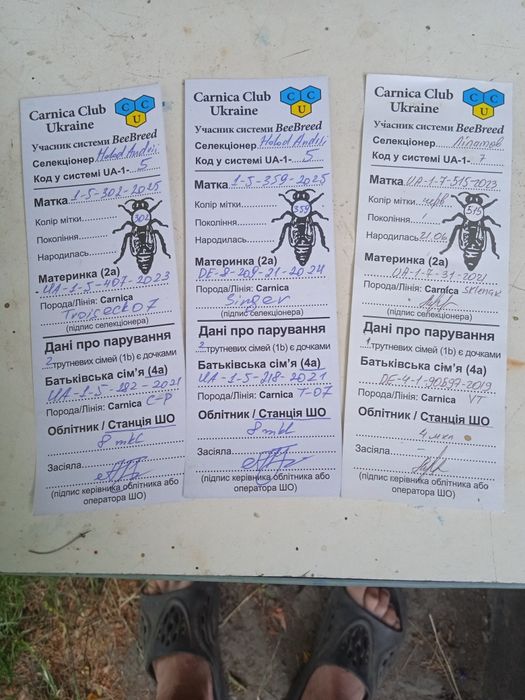 Carnica Club
Ukraine
C C U
Учасник системи BeeBreed
Селекціонер Holod Andrii
Код у системі UA-1- 5
Матка 1-5-302-2025
Колір мітки
302
Покоління
Народилась
Материнка (2а)
UA-1-5-407-2023
Порода/Лінія: Carnica
Troiseck 07
(підпис селекціонера)
Дані про парування
2 трутневих сімей (1b) є дочками
Батьківська сім'я (4а)
UA-1-5-192-2021
Порода/Лінія: Carnica C-P
Облітник / Станція ШО
8 mkl
Засіяла
(підпис керівника облітника або
оператора ШО)
Carnica Club
Ukraine
C C U
Учасник системи BeeBreed
Селекціонер Holod Andrii
Код у системі UA-1- 5
Матка 1-5-359-2025
Колір мітки
359
Покоління
Народилась
Материнка (2а)
DE-8-209-21-2024
Порода/Лінія: Carnica
Singer
(підпис селекціонера)
Дані про парування
2 трутневих сімей (1b) є дочками
Батьківська сім'я (4а)
UA-1-5-218-2021
Порода/Лінія: Carnica T-07
Облітник / Станція ШО
8 mkl
Засіяла
(підпис керівника облітника або
оператора ШО)
Carnica Club
Ukraine
C C U
Учасник системи BeeBreed
Селекціонер Ліпатов
Код у системі UA-1- 7
Матка UA-1-7-515-2023
Колір мітки черв
515
Покоління
Народилась 21.06
Материнка (2а)
UA-1-7-31-2021
Порода/Лінія: Carnica Sklenar
(підпис селекціонера)
Дані про парування
1 трутневих сімей (1b) є дочками
Батьківська сім'я (4а)
DE-4-1-90599-2019
Порода/Лінія: Carnica VT
Облітник / Станція ШО
4 мкл
Засіяла
(підпис керівника облітника або
оператора ШО)